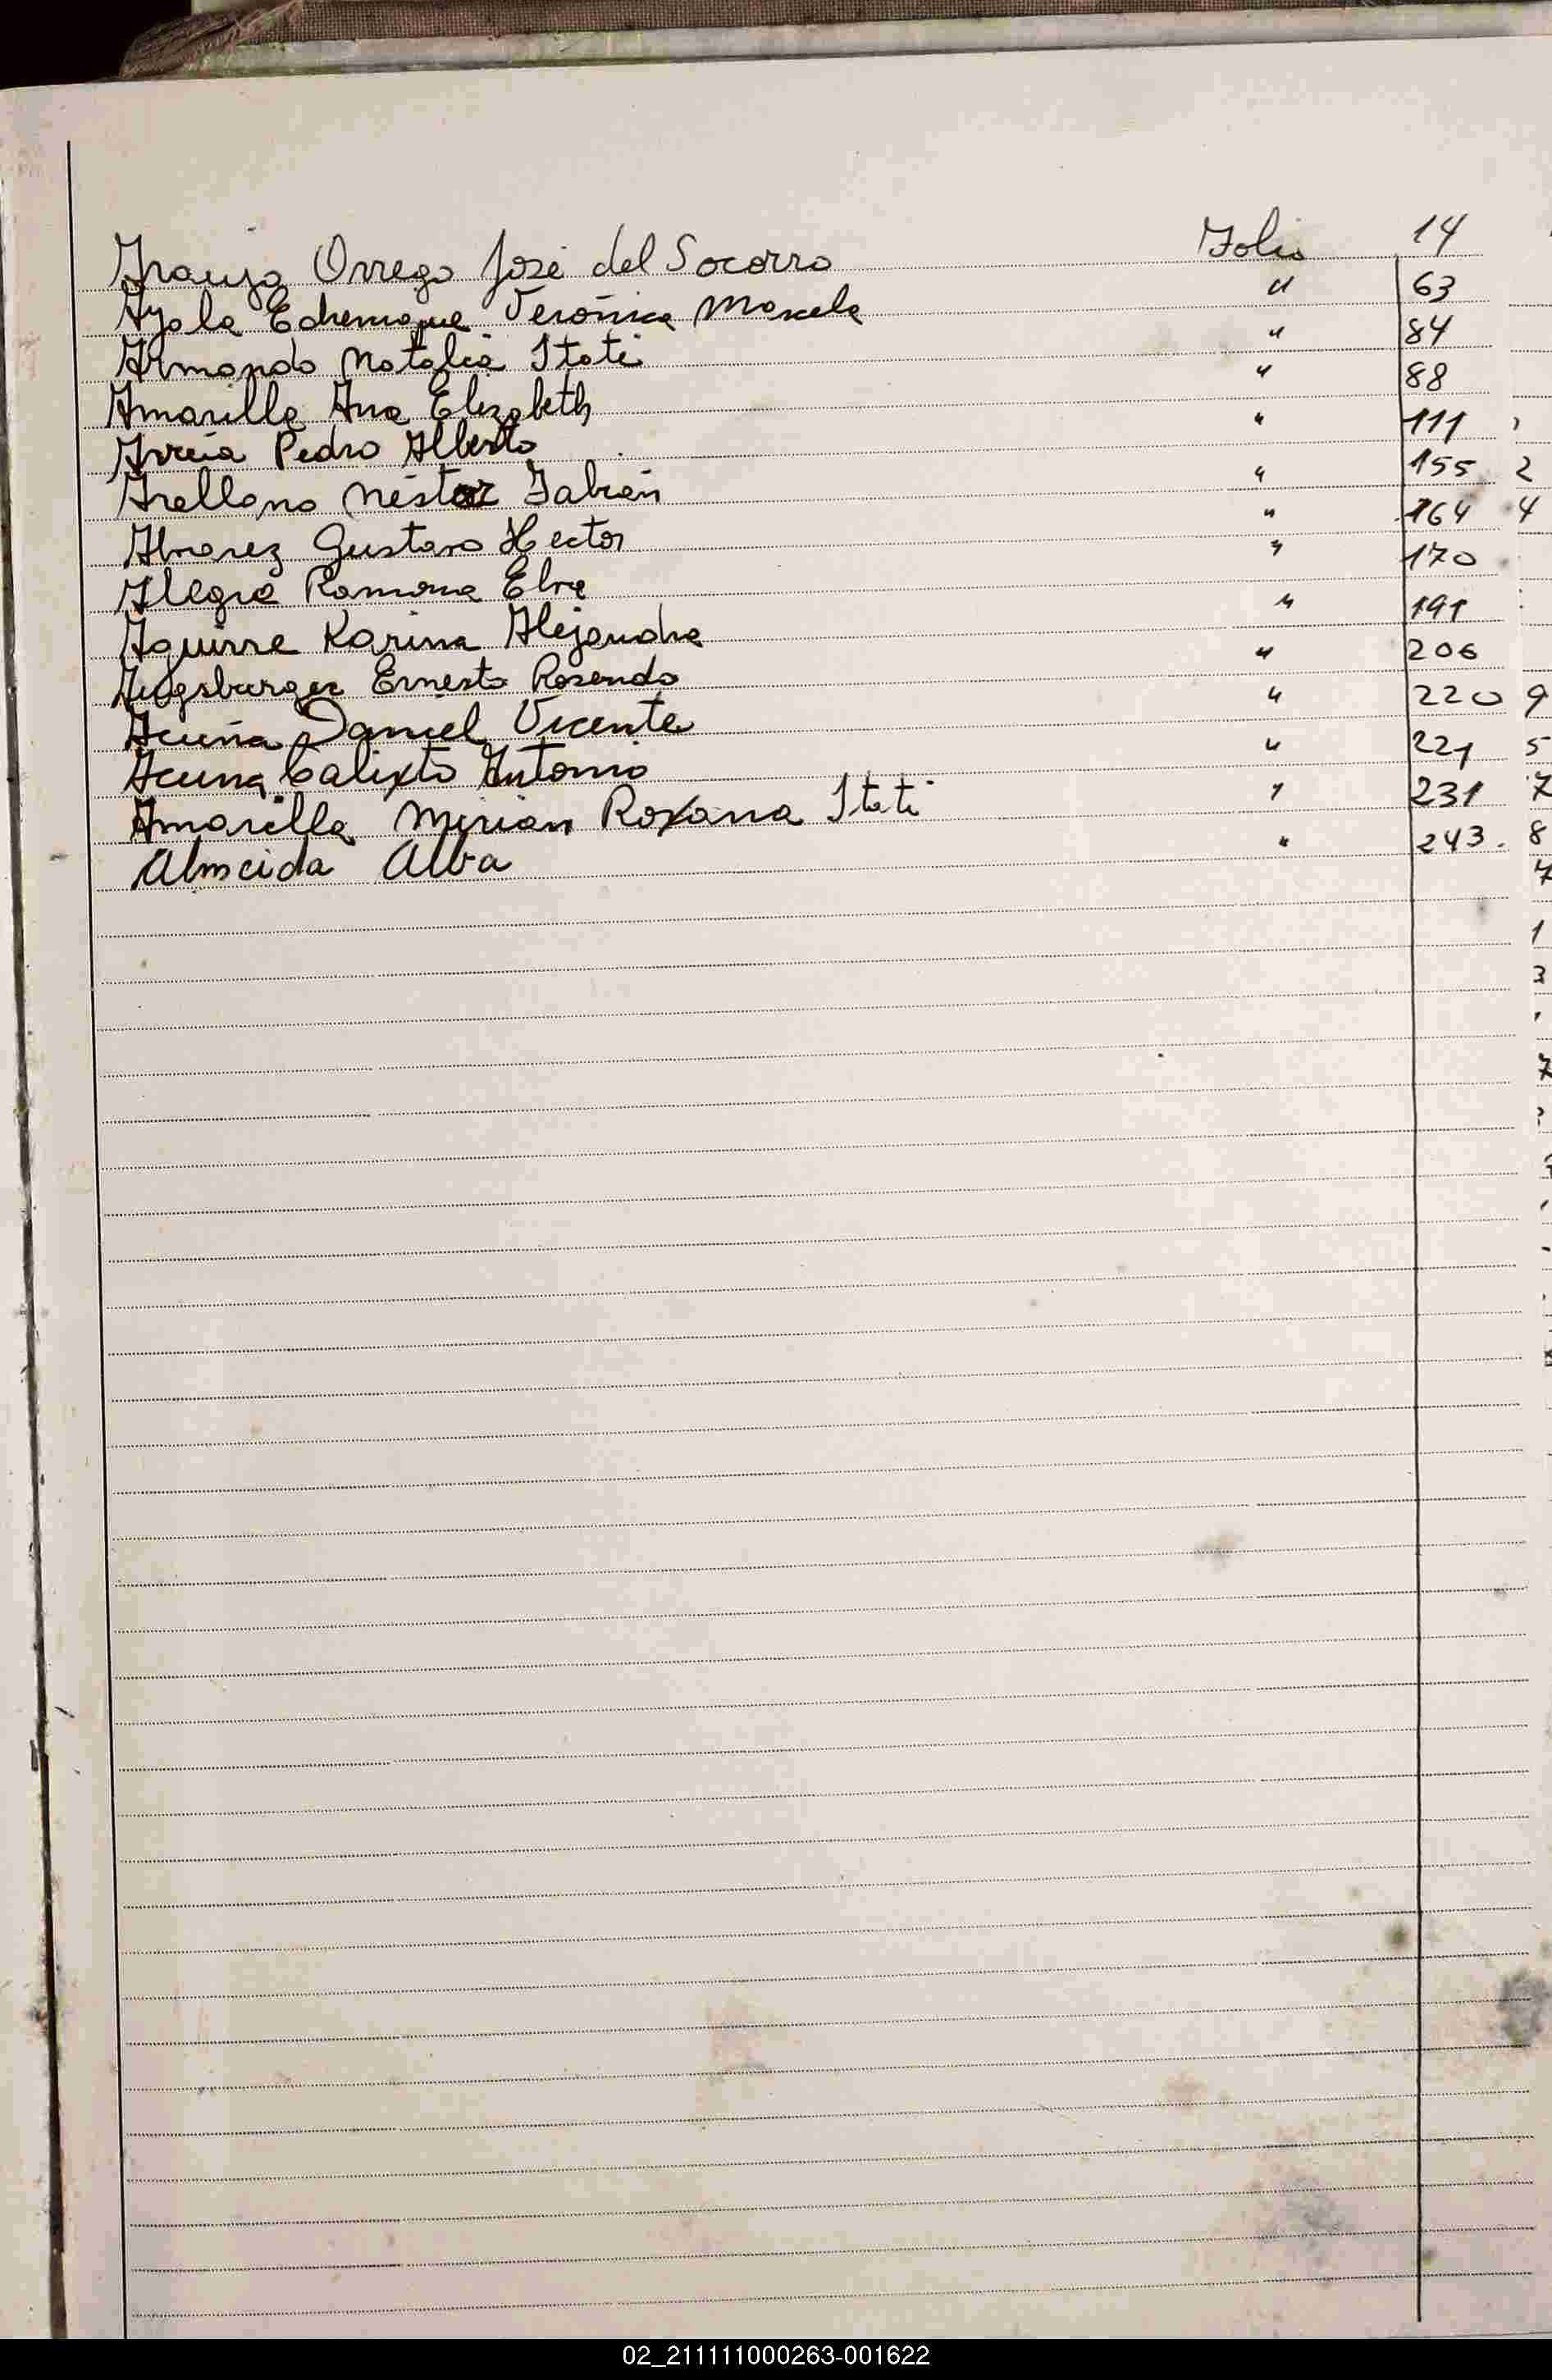 Araujo Orrego José del Socorro Folio 14
Ayala Echenique Verónica Marcela " 63
Armando Natalia Itati " 84
Amarilla Ana Elizabeth " 88
Arcia Pedro Alberto " 111
Arellano Néstor Fabián " 155
Alvarez Gustavo Hector " 164
Alegre Ramona Elva " 170
Aguirre Karina Alejandra " 191
Augsburger Ernesto Rosendo " 206
Acuña Daniel Vicente " 220
Acuña Calixto Antonio " 221
Amarilla Mirian Roxana Itati " 231
Almeida Alba " 243.
02_211111000263-001622